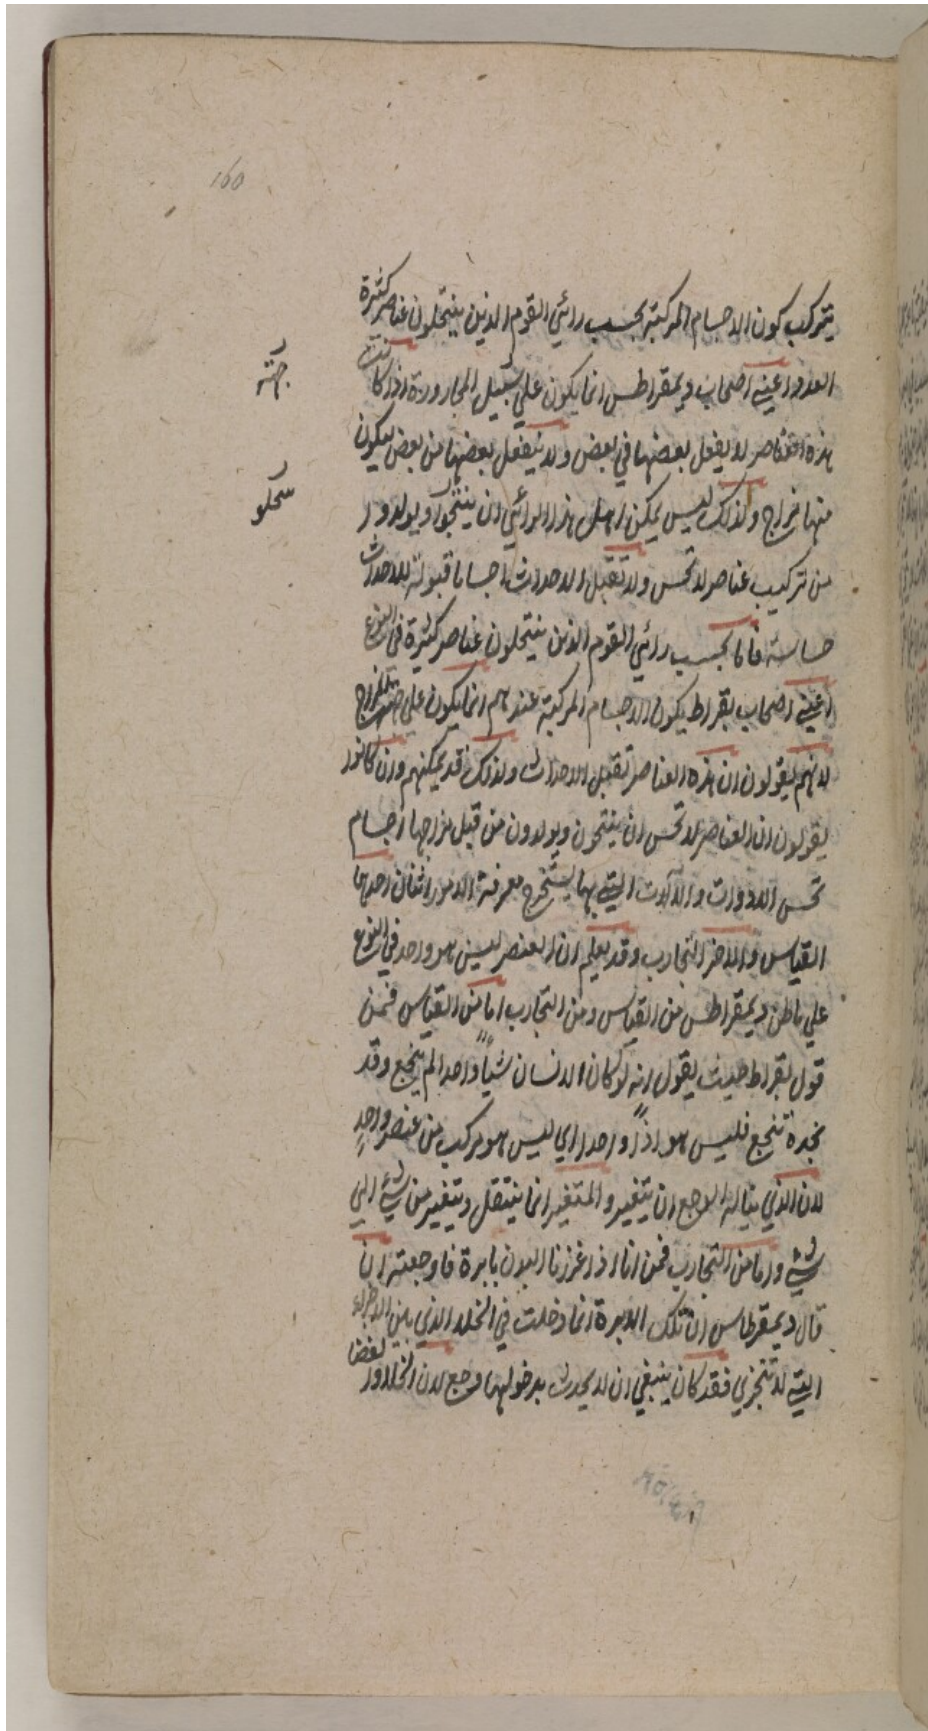 160
يتركب كون الاجسام المركبة بحسب رائي القوم الذين ينتحلون عناصر كثيرة
العدد اعني اصحاب ديمقراطس انما يكون علي سبيل المجاورة اذ كانت
هذه العناصر لا يفعل بعضها في بعض ولا ينفعل بعضها من بعض فيكون
منها مزاج ولذلك ليس يمكن اهل هذا الرائي ان ينتجوا ويولدوا
من تركيب عناصر لا تحس ولا تقبل الاحداث اجساما قبولة للاحداث
حساسة فاما بحسب رائي القوم الذين ينتحلون عناصر كثيرة في النوع
اعني اصحاب بقراط يكون الاجسام المركبة عندهم انما يكون علي جهة المزاج
لانهم يقولون ان هذه العناصر تقبل الاحداث ولذلك قد يمكنهم وان كانوا
يقولون ان العناصر لا تحس ان ينتجون ويولدون من قبل مزاجها اجسام
تحس الادوات والآلات التي بها يستخرج معرفة الامور اثنان احدها
القياس والاخر التجارب وقد يعلم ان العنصر ليس هو واحد في النوع
علي ماظن ديمقراطس من القياس ومن التجارب اما من القياس فمن
قول بقراط حيث يقول انه لو كان الانسان شيأً واحدا لم ينجع وقد
نجده تنجع فليس هو اذاً واحدا اي ليس هو مركب من عنصر واحد
لان الذي يناله الوجع ان يتغير والمتغير انما ينتقل ويتغير من شيء الي
شيء واما من التجارب فمن انا اذ اغرزنا البدن بابرة فاوجعته ان
قال ديمقرطاس ان تلك الابرة انما دخلت في الخلاء الذي بين الاجزاء
التي لا تتجزي فقد كان ينبغي ان لا يحدث بدخولها وجع لان الخلاء
جهة